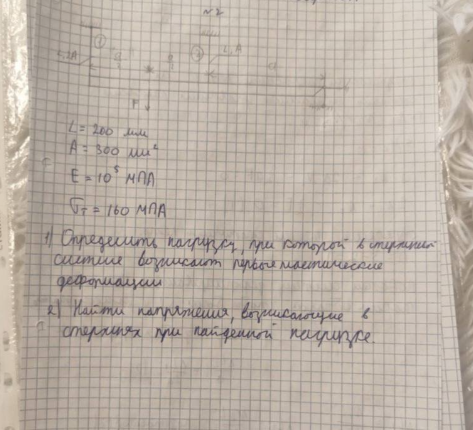 №2
1
2
F
L = 200 мм
A = 300 мм²
E = 10⁵ МПА
σт = 160 МПА
1) Определить нагрузку, при которой в стержневой
системе возникают первые пластические
деформации
2) Найти напряжения, возникающие в
стержнях при найденной нагрузке.